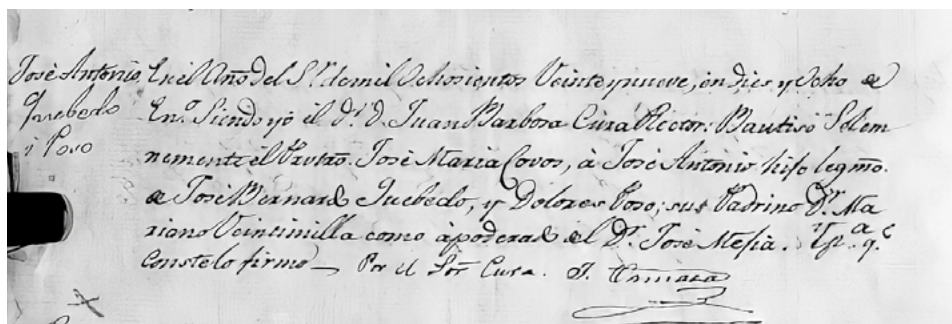 José Antonio
Quebedo
i Poso
En el Año del Sr. de mil Ochosientos Veinte y nueve, en dies y Ocho de
En.o Siendo yo el Dr. D. Juan Barbosa Cura Rector: Bautisó Solem
nemente el Prvtro. José Maria Covos, à José Antonio hijo legmo.
de José Bernardo Quebedo, y Dolores Poso; sus Padrino Dr. Ma
riano Veintimilla como àpoderado del Dr. José Mesia. Y pa. qe
Conste lo firmo — Por el Sor. Cura. J.